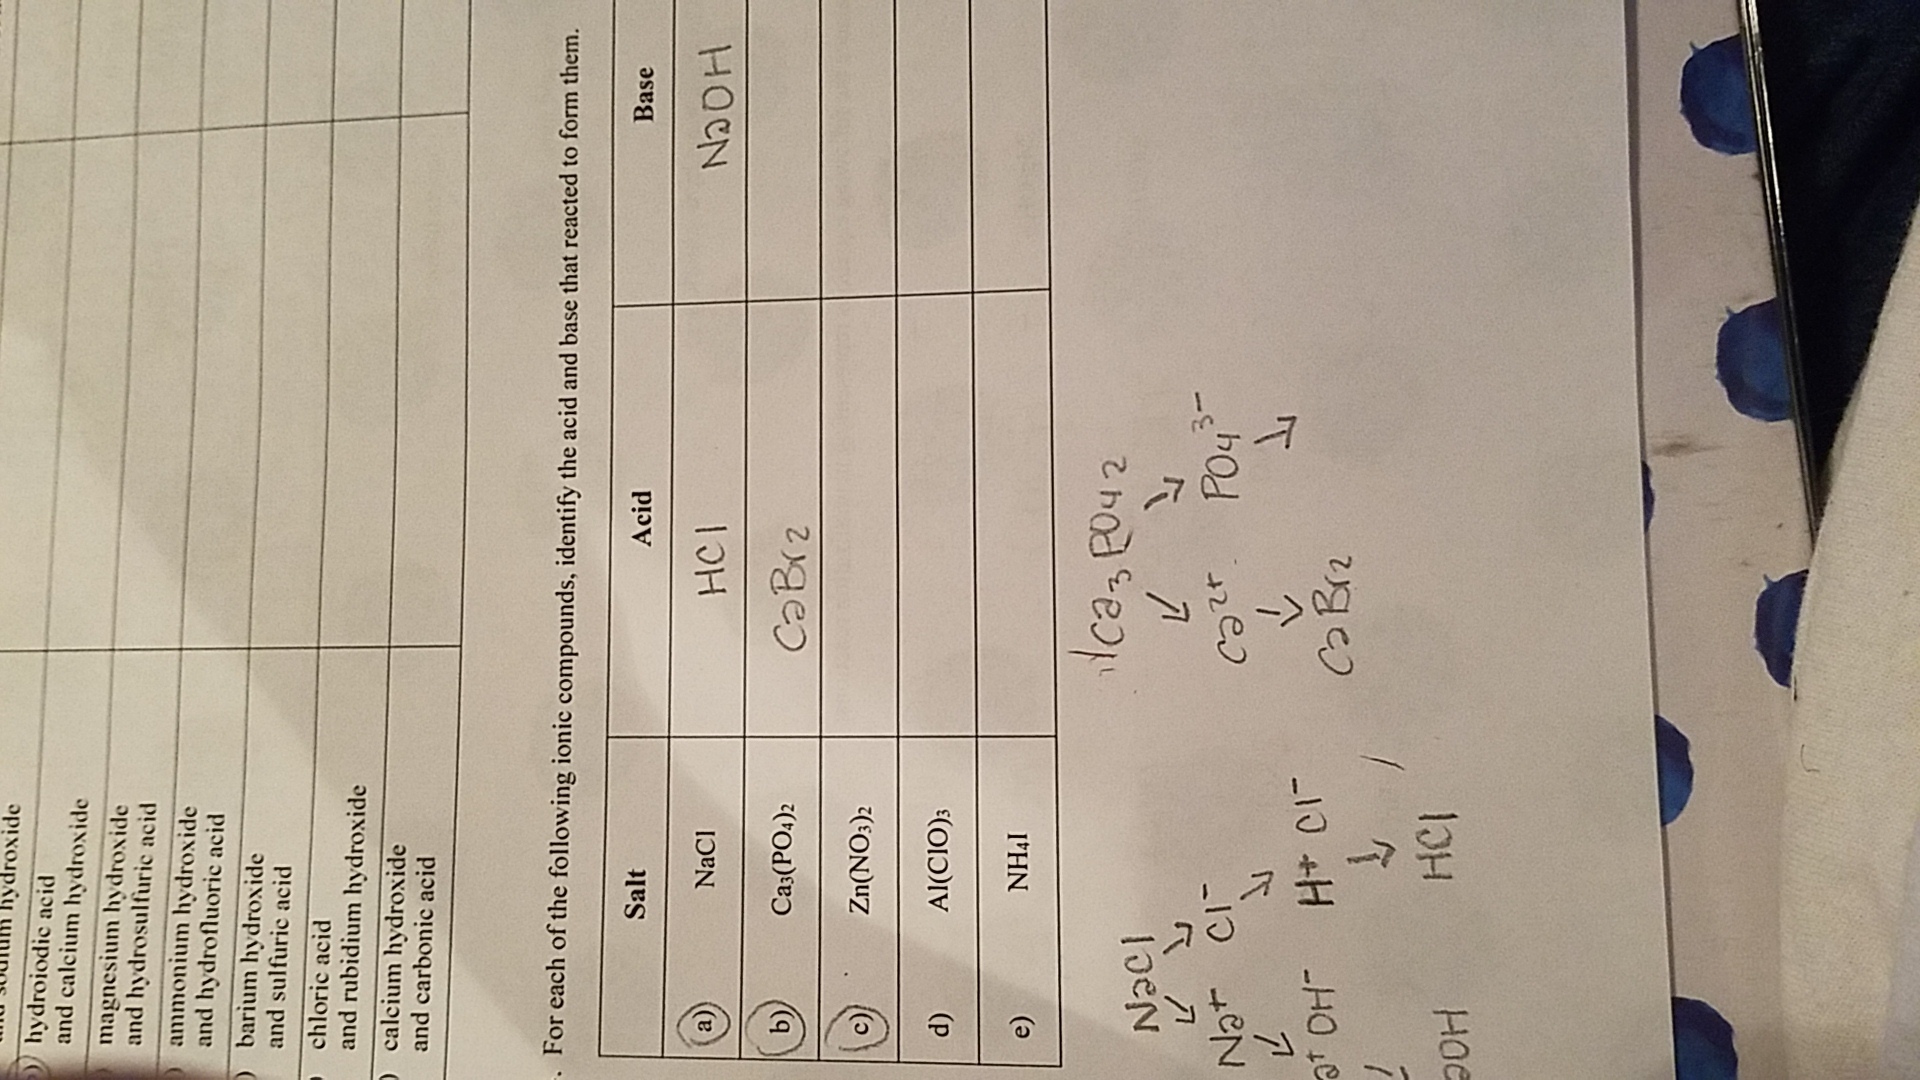 hydroxide
hydroiodic acid
and calcium hydroxide
magnesium hydroxide
and hydrosulfuric acid
ammonium hydroxide
and hydrofluoric acid
barium hydroxide
and sulfuric acid
chloric acid
and rubidium hydroxide
calcium hydroxide
and carbonic acid
. For each of the following ionic compounds, identify the acid and base that reacted to form them.
Salt Acid Base
a) NaCl HCl NaOH
b) Ca3(PO4)2 CaBr2
c) Zn(NO3)2
d) Al(ClO)3
e) NH4I
NaCl
Na+ Cl-
a+ OH- H+ Cl-
aOH HCl
Ca3PO42
Ca2+ PO43-
CaBr2